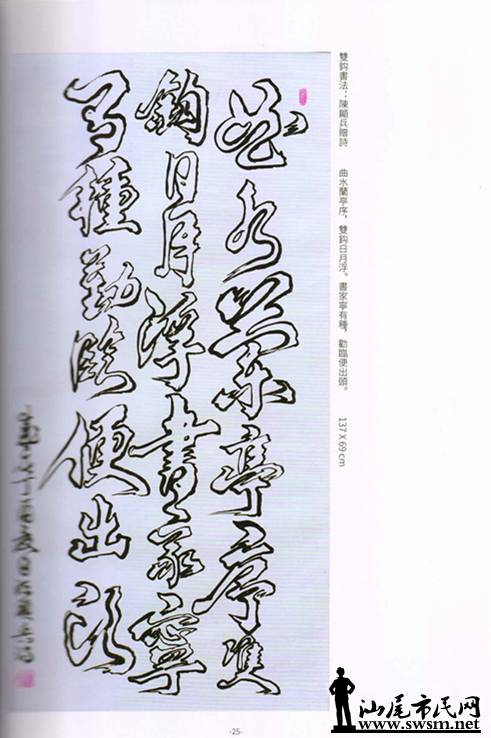 雙鈎書法：陳顯兵贈詩　曲水蘭亭序，雙鈎日月浮。書家寧有種，勸臨便出頭。　137 X 69 cm
曲水蘭亭序雙
鈎日月浮書家寧
有種勤臨便出頭
-25-
汕尾市民网
www.swsm.net